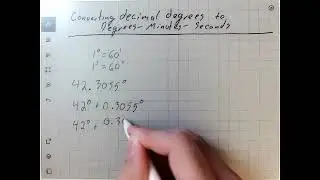 Converting decimal degrees to
Degrees-Minutes-Seconds
1°=60'
1°=60"
42.3055°
42° + 0.3055°
42° + 0.30